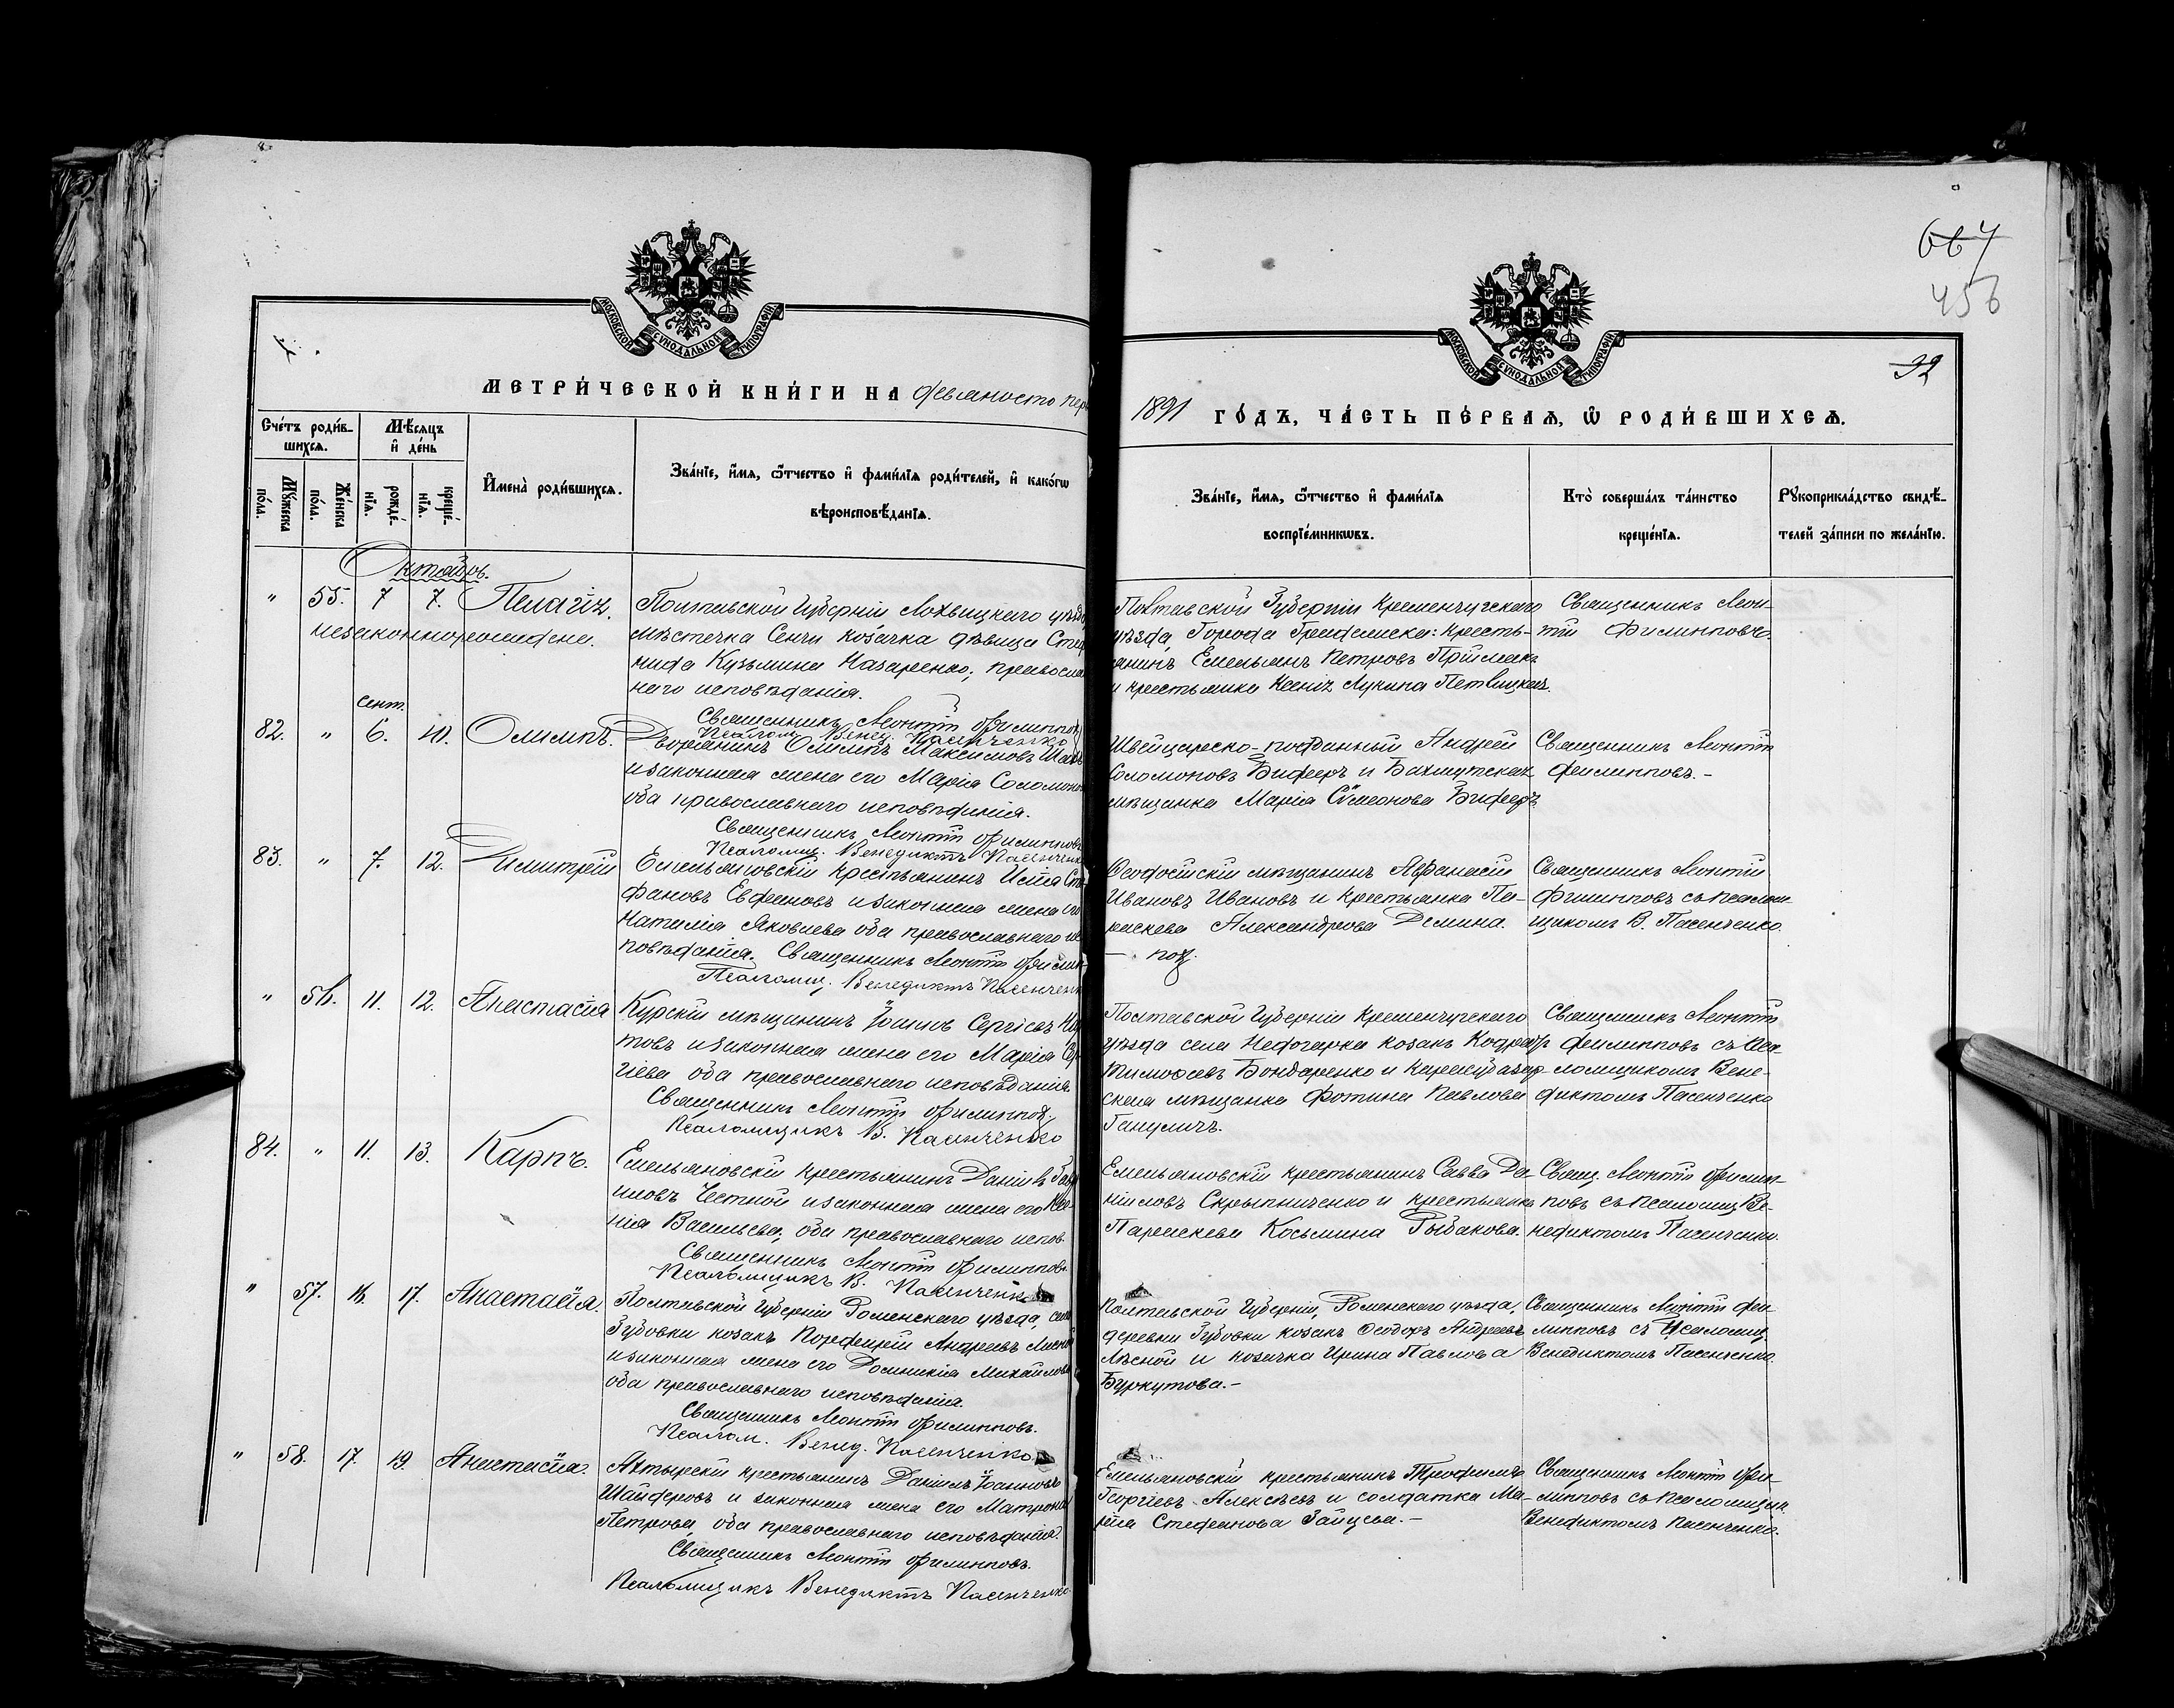 667
456
32
МОСКОВСКОЙ СУНОДАЛЬНОЙ ТИПОГРАФІИ
МОСКОВСКОЙ СУНОДАЛЬНОЙ ТИПОГРАФІИ
МЕТРИ́ЧЕСКОЙ КНИ́ГИ НА девяносто пер
1891 ГО́ДЪ, ЧА́СТЬ ПЕ́РВАѦ, Ѡ РОДИ́ВШИХСѦ.
Сче́тъ роди́в-
шихсѧ.
Мѣ́сѧцъ
и҆ де́нь
Му́жеска
по́ла.
Же́нска
по́ла.
рожде́-
нїѧ.
креще́-
нїѧ.
И҆мена̀ роди́вшихсѧ.
Зва́нїе, и҆́мѧ, ѻ҆́тчество и҆ фами́лїѧ роди́телей, и҆ како́гѡ
вѣроисповѣ́данїѧ.
Зва́нїе, и҆́мѧ, ѻ҆́тчество и҆ фами́лїѧ
воспрїе́мникѡвъ.
Кто̀ соверша́лъ та́инство
креще́нїѧ.
Рꙋкоприкла́дство свидѣ́-
телей за́писи по жела́нїю.
Октябрь.
" 55. 7 7. Пелагія.
незаконнорожденн.
Полтавской Губерніи Лохвицкаго уѣзда
мѣстечка Сенчи козачка дѣвица Сте
нида Кузьмина Назаренко; правосла
наго исповѣданія.
Священникъ Леонтій Филиппов
Псалом. Венед. Пасенченко
Полтавской Губерніи Кременчугскаго
уѣзда, Города Градижска: Кресть-
янинъ Емельянъ Петровъ Приймакъ
и крестьянка Ксенія Лукина Петвицкая.
Священникъ Леон-
тій Филипповъ.
сент.
82. " 6. 10. Олимпъ.
Дворянинъ Олимпъ Максимовъ
и законная жена его Марія Соломоно
оба православнаго исповѣданія.
Священникъ Леонтій Филиппов
Псаломщ. Венедиктъ Пасенченк
Швейцарско-подданный Андрей
Соломоновъ Бифферъ и Бахмутская
мѣщанка Марія Симеонова Бифферъ
Священникъ Леонтій
Филипповъ.-
83. " 7. 12. Димитрій
Емельяновскій крестьянинъ Илія Сте
фановъ Евфановъ и законная жена его
Наталія Яковлева оба православнаго ис
повѣданія. Священникъ Леонтій Филип
Псаломщ. Венедиктъ Пасенченк
Ѳеодосійскій мѣщанинъ Аѳанасій
Ивановъ Ивановъ и крестьянка Па-
раскева Александрова Демина.
Священникъ Леонтій
Филипповъ съ псалом-
щикомъ В. Пасенченко
" 56. 11. 12. Анастасія
Курскій мѣщанинъ Іоаннъ Сергіевъ
товъ и законная жена его Марія Сер
гіева оба православнаго исповѣданія
Священникъ Леонтій Филиппов.
Псаломщикъ В. Пасенченко
Полтавской Губерніи Кременчугскаго
уѣзда села Недогарка козакъ Кодратъ
Тимоѳеевъ Бондаренко и Карасубазар-
ская мѣщанка Фотина Павлова
Гануличъ.
Священникъ Леонтій
Филипповъ съ Пса-
ломщикомъ Вене-
диктомъ Пасенченко
84. " 11. 13. Карпъ.
Емельяновскій крестьянинъ Даніилъ Гав
иловъ Честной и законная жена его Ксе
нія Васильева, оба православнаго испов.
Священникъ Леонтій Филиппов.
Псаломщикъ В. Пасенченко
Емельяновскій крестьянинъ Савва Да-
ніиловъ Скрыпниченко и крестьянка
Параскева Косьмина Рыбакова.
Свящ. Леонтій Филип-
повъ съ псаломщ. Ве-
недиктомъ Пасенченк.
" 57. 16. 17. Анастасія.
Полтавской Губерніи Роменскаго уѣзда, села
Зубовки козакъ Порфирій Андреевъ Лѣсной
и законная жена его Домникія Михайлова
оба православнаго исповѣданія.
Священникъ Леонтій Филипповъ.
Псалом. Венед. Пасенченко.
Полтавской Губерніи, Роменскаго уѣзда,
деревни Зубовки козакъ Ѳеодоръ Андреевъ
Лѣсной и козачка Ирина Павлова
Буркутова.-
Священникъ Леонтій Фи-
липповъ съ Псаломщ.
Венедиктомъ Пасенченко.
" 58. 17. 19. Анастасія.
Ахтырскій крестьянинъ Даніилъ Іоанновъ
Шайдеровъ и законная жена его Матрона
Петрова, оба православнаго исповѣданія.
Священникъ Леонтій Филипповъ.
Псаломщикъ Венедиктъ Пасенченко
Емельяновскій крестьянинъ Трофимъ
Георгіевъ Алексѣевъ и солдатка Ма-
рія Стефанова Зайцева.-
Священникъ Леонтій Фи-
липповъ съ псаломщик.
Венедиктомъ Пасенченко.